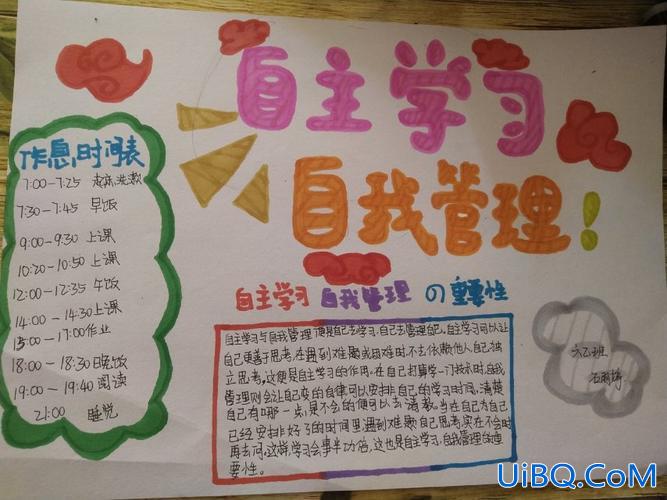 自主学习
自我管理!
作息时间表
7:00-7:25 起床洗漱
7:30-7:45 早饭
9:00-9:30 上课
10:20-10:50 上课
12:00-12:35 午饭
14:00-14:30 上课
15:00-17:00 作业
18:00-18:30 晚饭
19:00-19:40 阅读
21:00 睡觉
自主学习 自我管理 の 重要性
自主学习与自我管理便是自己去学习,自己去管理自己,自主学习可以让
自己更善于思考,在遇到难题或困难时不去依赖他人自己独
立思考,这便是自主学习的作用,在自己打算学一门技术时,自我
管理则会让自己变的自律可以安排自己的学习时间,清楚
自己有哪一点,是不会的便可以去请教,当在自己为自己
已经安排好了的时间里遇到难题自己思考,实在不会时
再去问,这样,学习会事半功倍,这也是自主学习,自我管理的重
要性。
六乙班
UiBQ.CoM